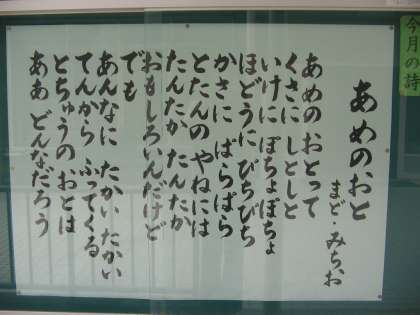 今月の詩
あめのおと
まど・みちお
あめの おとって
くさに しとしと
いけに ぽちょぽちょ
ほどうに ぴちぴち
かさに ぱらぱら
とたんの やねには
たんたか たんたか
おもしろいんだけど
でも
あんなに たかい たかい
てんから ふってくる
とちゅうの おとは
ああ どんなだろう